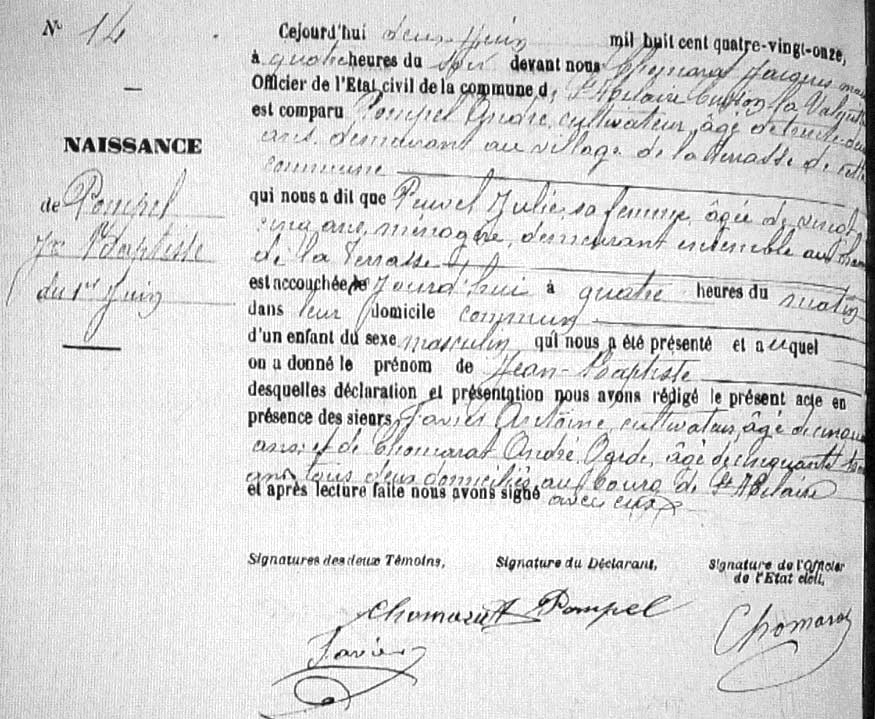 N° 14
NAISSANCE
de Pompel
Jn Baptiste
du 1er Juin
Cejourd'hui deux Juin mil huit cent quatre-vingt-onze,
à quatre heures du soir devant nous Chomarat Jacques maire
Officier de l'Etat civil de la commune de St Hilaire Cusson la Valmitte
est comparu Pompel André, cultivateur, âgé de trente-deux
ans, demeurant au village de la Terrasse de cette
commune
qui nous a dit que Julie, sa femme, âgée de vingt
cinq ans, ménagère, demeurant ensemble au
de la Terrasse
est accouchée Jourd'hui à quatre heures du matin
dans leur domicile commun
d'un enfant du sexe masculin qui nous a été présenté et auquel
on a donné le prénom de Jean-Baptiste
desquelles déclaration et présentation nous avons rédigé le présent acte en
présence des sieurs Favier Antoine, cultivateur, âgé de
ans; et de Chomarat André, âgé de cinquante
ans tous deux domiciliés au bourg de St Hilaire
et après lecture faite nous avons signé avec eux
Signatures des deux Témoins, Signature du Déclarant, Signature de l'Officier
de l'Etat civil.
Chomarat Pompel Chomarat
Favier